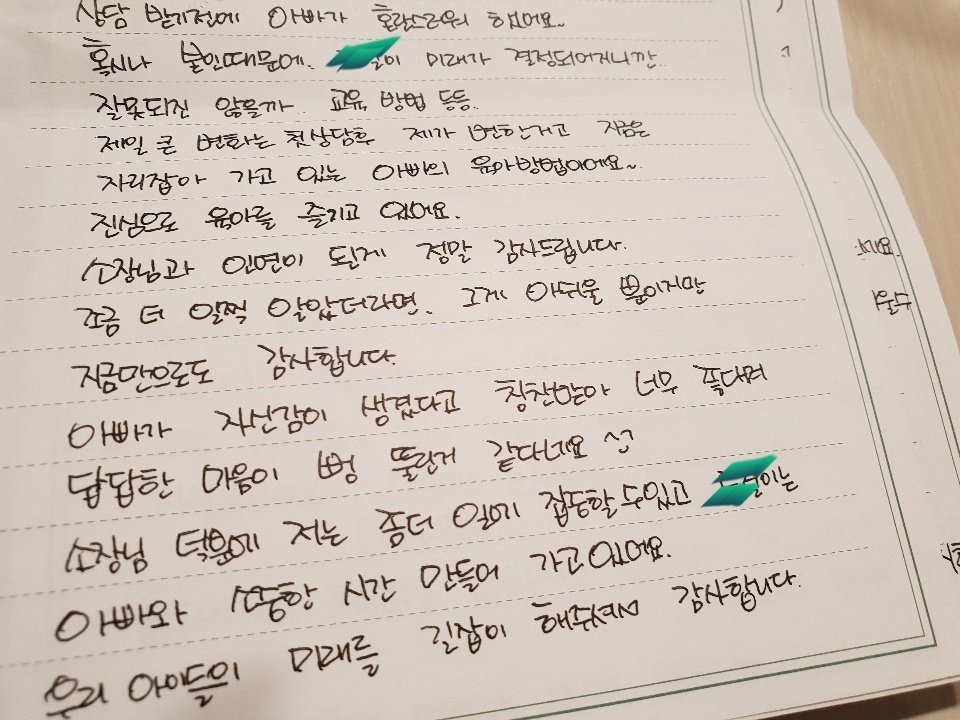 상담 받기전에 아빠가 혼란스러워 했어요..
혹시나 본인때문에. 이 미래가 결정되어지니깐..
잘못되진 않을까 교육 방법 등등..
제일 큰 변화는 첫상담후 제가 변한거고 지금은
자리잡아 가고 있는 아빠의 육아방법이에요~
진심으로 육아를 즐기고 있어요.
소장님과 인연이 된게 정말 감사드립니다.
조금 더 일찍 알았더라면. 그게 아쉬울 뿐이지만
지금만으로도 감사합니다.
아빠가 자신감이 생겼다고 칭찬받아 너무 좋대며
답답한 마음이 뻥 뚫린거 같다네요
소장님 덕분에 저는 좀더 일에 집중할수있고 이는
아빠와 소중한 시간 만들어 가고있어요.
우리 아이들의 미래를 길잡이 해주셔서 감사합니다.